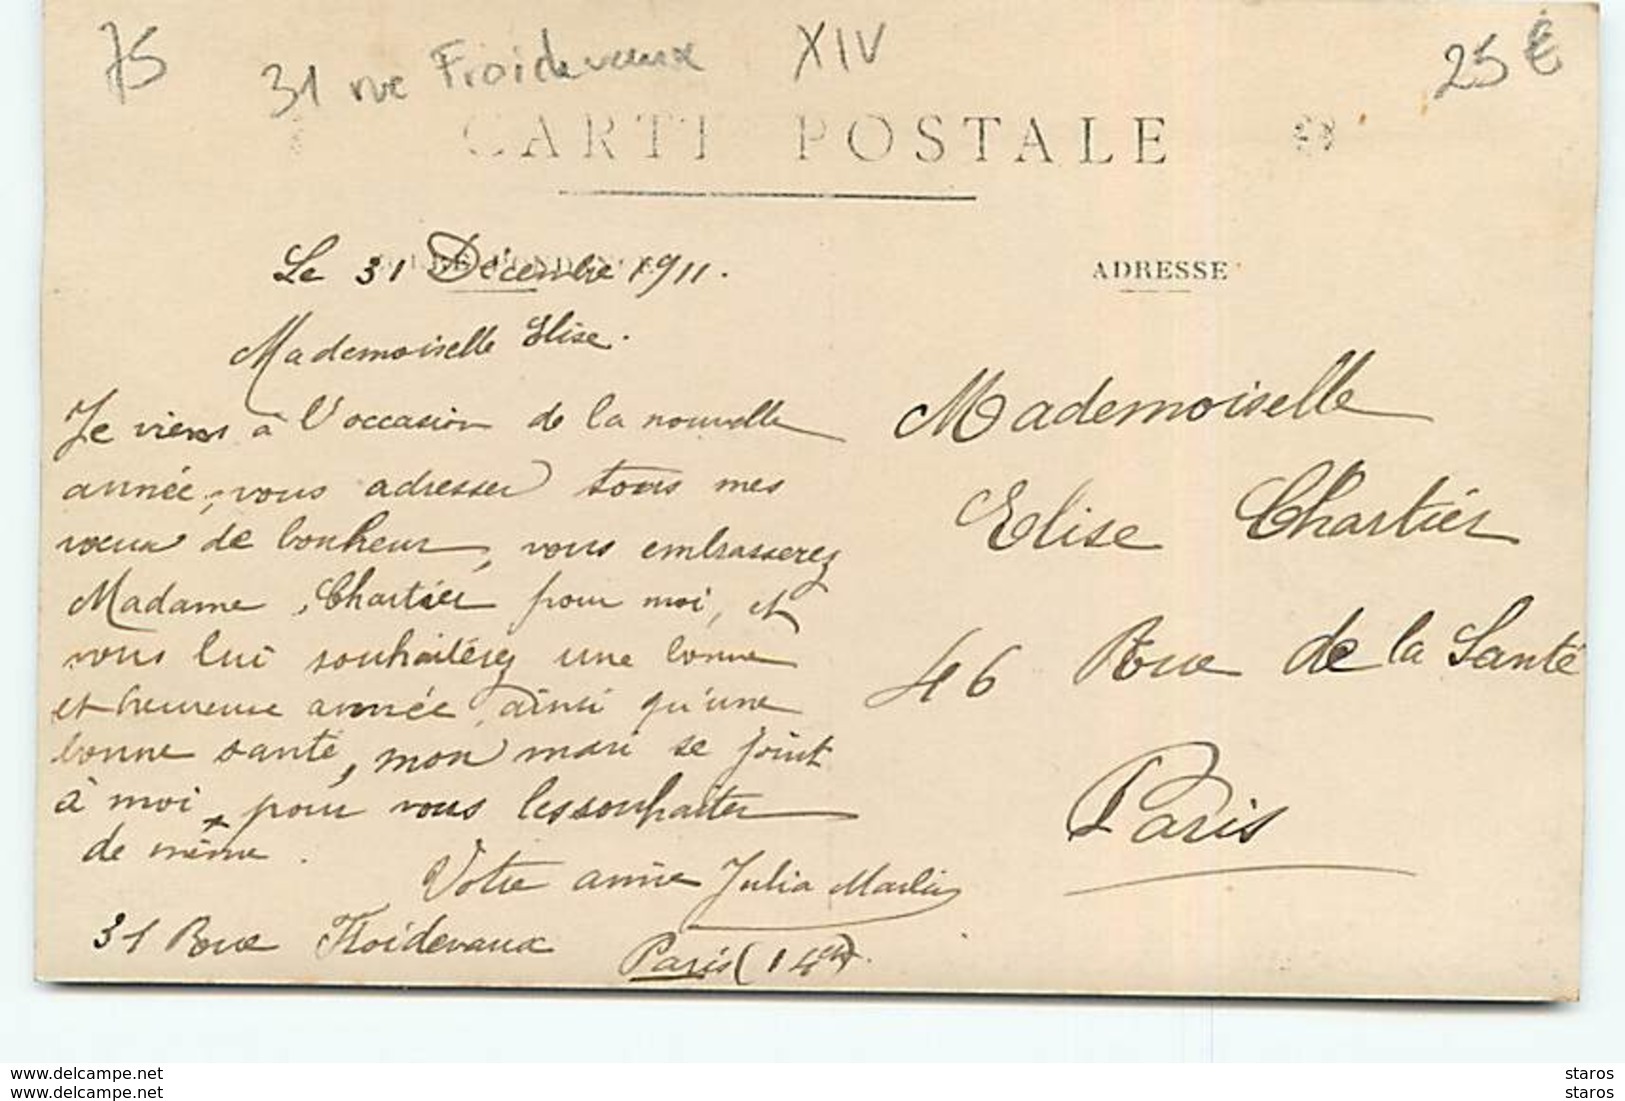 75
31 rue Froidevaux XIV
25 €
CARTE POSTALE
Le 31 Décembre 1911.
Mademoiselle Elise.
Je viens à l'occasion de la nouvelle
année, vous adresser tous mes
vœux de bonheur, vous embrasserez
Madame Chartier pour moi, et
vous lui souhaiterez une bonne
et heureuse année, ainsi qu'une
bonne santé, mon mari se joint
à moi pour vous les souhaiter
de même.
Votre amie Julia Marlin
31 Rue Froidevaux
Paris (14em).
ADRESSE
Mademoiselle
Elise Chartier
46 Rue de la Santé
Paris
www.delcampe.net
www.delcampe.net
staros
staros